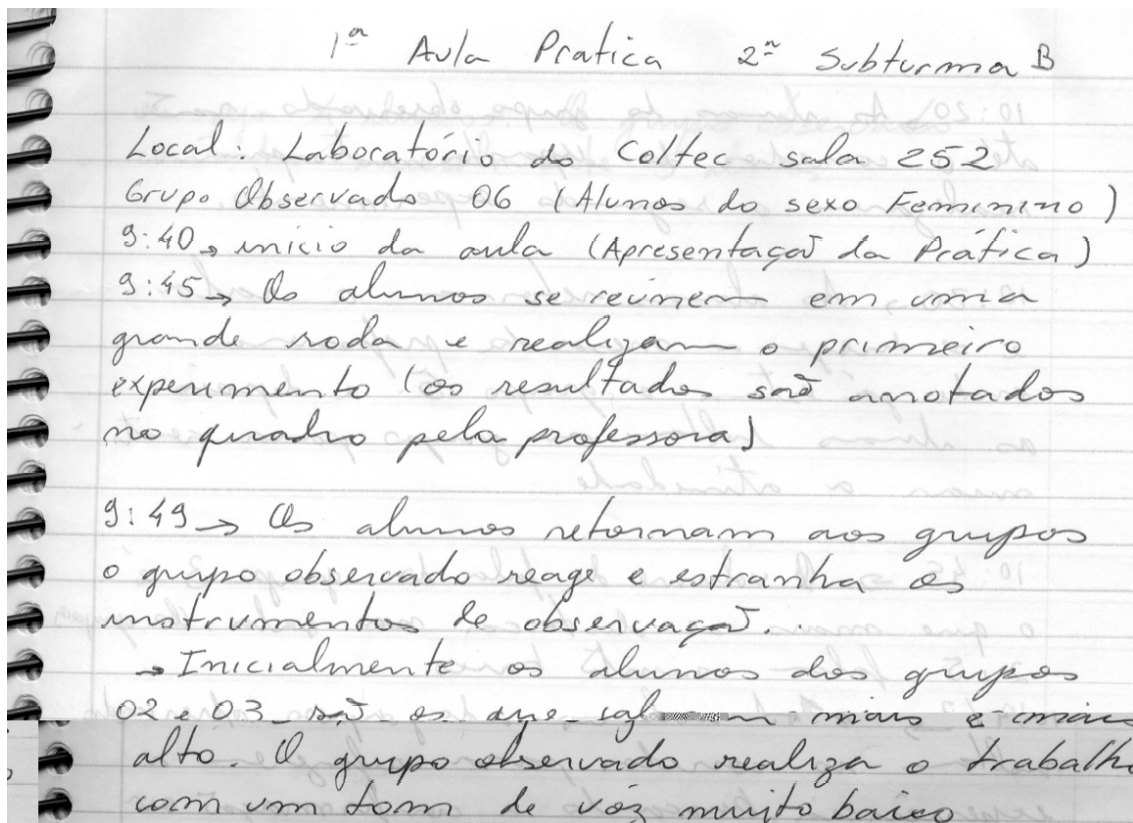 1ª Aula Pratica 2ª Subturma B
Local: Laboratório do Coltec sala 252
Grupo Observado 06 (Alunos do sexo Feminino)
9:40 → início da aula (Apresentação da Prática)
9:45 → Os alunos se reúnem em uma
grande roda e realizam o primeiro
experimento (os resultados são anotados
no quadro pela professora)
9:49 → Os alunos retornam aos grupos
o grupo observado reage e estranha os
instrumentos de observação.
→ Inicialmente os alunos dos grupos
02 e 03 são os que mais e mais
alto. O grupo observado realiza o trabalho
com um tom de vóz muito baixo